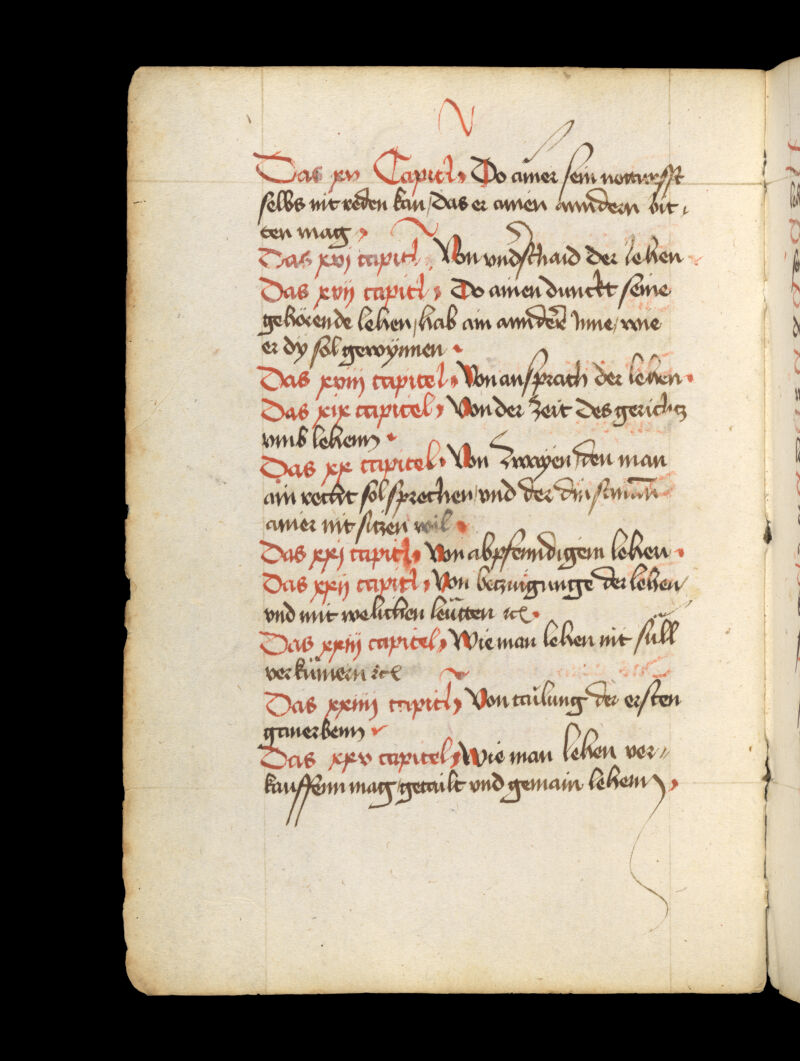 V
Das xv Capitl, Do ainer sein notturfft
selbs nit reden kan / Das er ainen anndern bit,
ten mag,
Das xvj capitl, Von vndschaid der lehen
Das xvij capitl, Do ainen dunckt seine
gehörende lehen / hab ain anndere Inne / wie
er dy sol gewynnen
Das xviij capitel, Von ansprach der lehen
Das xix capitel, Von der Zeit des gerichtz
vmb lehenn
Das xx capitel, Von Zwayen / den man
ain recht sol sprechen / vnd der dinstman
ainer nit sitzen wil
Das xxj capitl, Von abpfenndigem lehen
Das xxij capitl, Von betzuigunge der lehen /
vnd mit welichen leütten ꝛc
Das xxiij capitel, Wie man lehen nit süll
verkümern ꝛc
Das xxiiij capitl, Von tailung der ersten
ganerbenn
Das xxv capitel, Wie man lehen ver-
kauffenn mag / getailt vnd gemain lehenn,